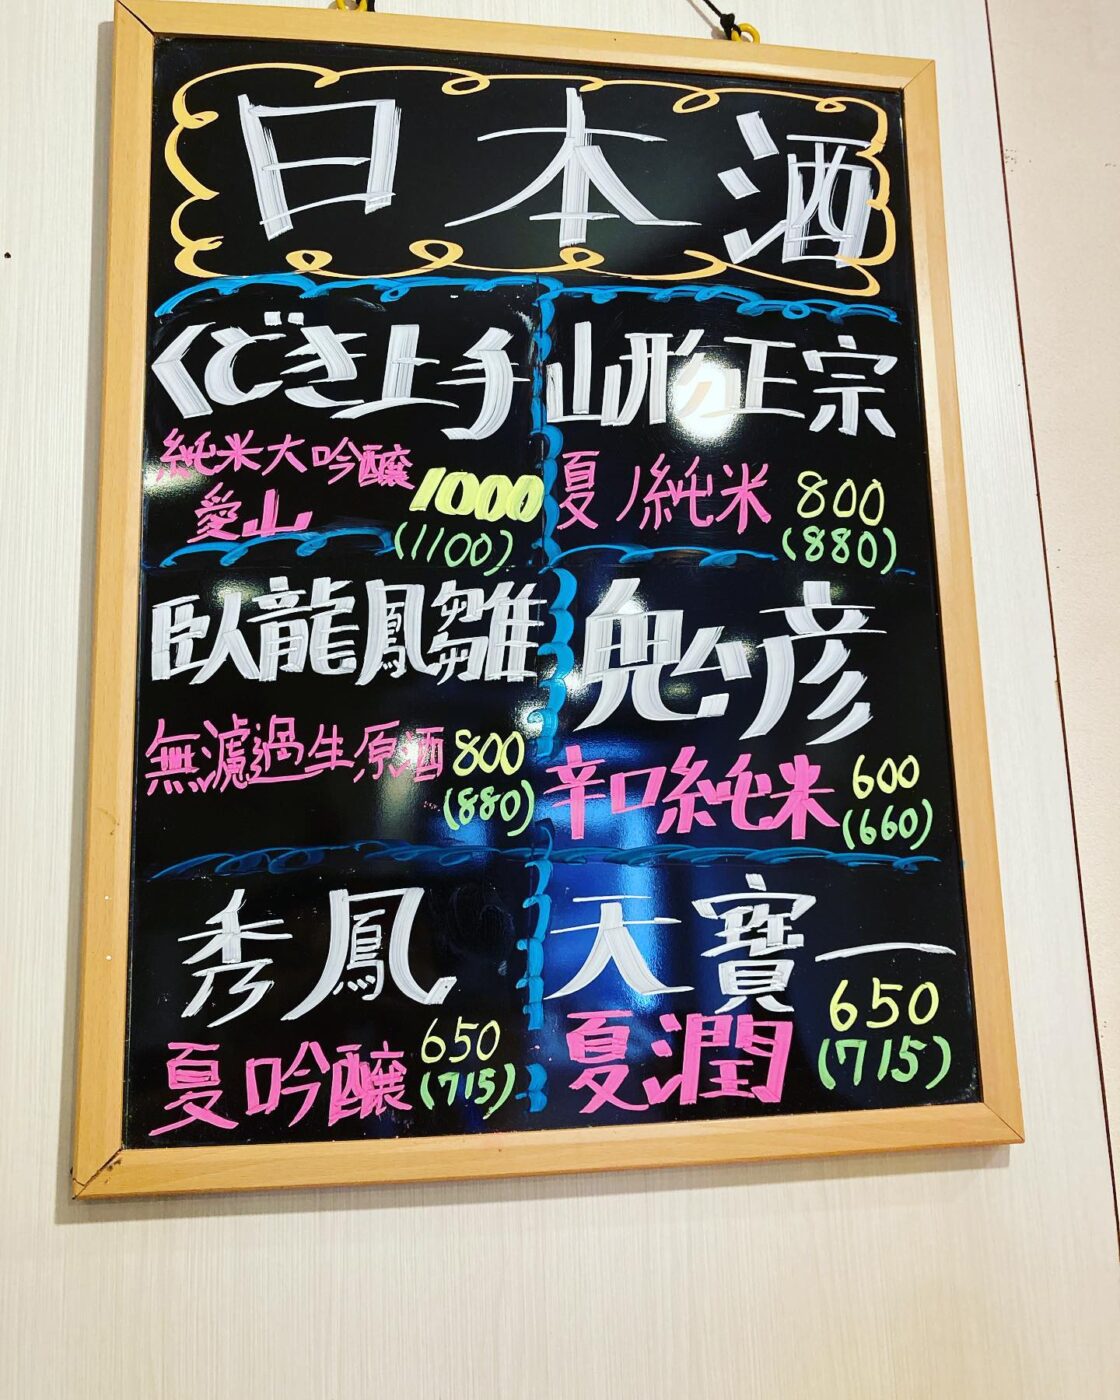 日本酒
くどき上手
純米大吟醸
愛山
1000
(1100)
山形正宗
夏ノ純米
800
(880)
臥龍鳳雛
無濾過生原酒
800
(880)
鬼台彦
辛口純米
600
(660)
秀鳳
夏吟醸
650
(715)
天寶一
夏潤
650
(715)